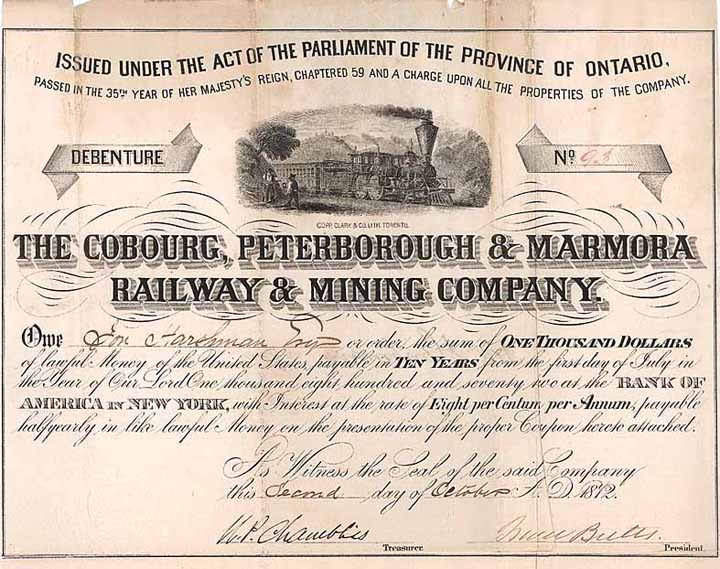 ISSUED UNDER THE ACT OF THE PARLIAMENT OF THE PROVINCE OF ONTARIO,
PASSED IN THE 35TH YEAR OF HER MAJESTY'S REIGN, CHAPTERED 59 AND A CHARGE UPON ALL THE PROPERTIES OF THE COMPANY.
DEBENTURE
No. 93
COPP, CLARK & CO. LITH. TORONTO.
THE COBOURG, PETERBOROUGH & MARMORA
RAILWAY & MINING COMPANY.
Owe Harshman Esq or order, the sum of ONE THOUSAND DOLLARS
of lawful Money of the United States, payable in TEN YEARS from the first day of July in
the Year of Our Lord One thousand eight hundred and seventy two at the BANK OF
AMERICA IN NEW YORK, with Interest at the rate of Eight per Centum per Annum, payable
halfyearly in like lawful Money on the presentation of the proper Coupon hereto attached.
As Witness the Seal of the said Company
this Second day of October A.D. 1872.
W. P. Chambliss
Treasurer.
President.